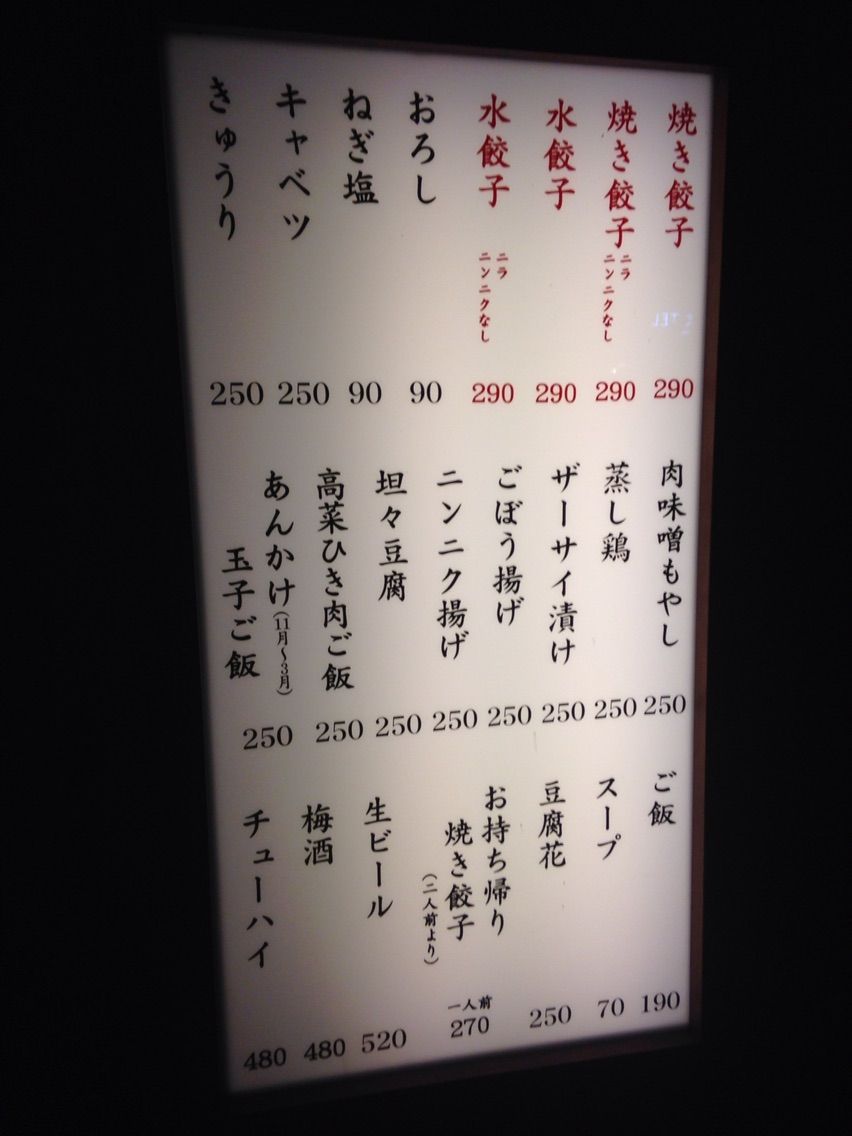 焼き餃子 290
焼き餃子 ニラ ニンニクなし 290
水餃子 290
水餃子 ニラ ニンニクなし 290
おろし 90
ねぎ塩 90
キャベツ 250
きゅうり 250
肉味噌もやし 250
蒸し鶏 250
ザーサイ漬け 250
ごぼう揚げ 250
ニンニク揚げ 250
坦々豆腐 250
高菜ひき肉ご飯 250
あんかけ(11月〜3月)
玉子ご飯 250
ご飯 190
スープ 70
豆腐花 250
お持ち帰り
焼き餃子
(二人前より)
一人前
270
生ビール 520
梅酒 480
チューハイ 480